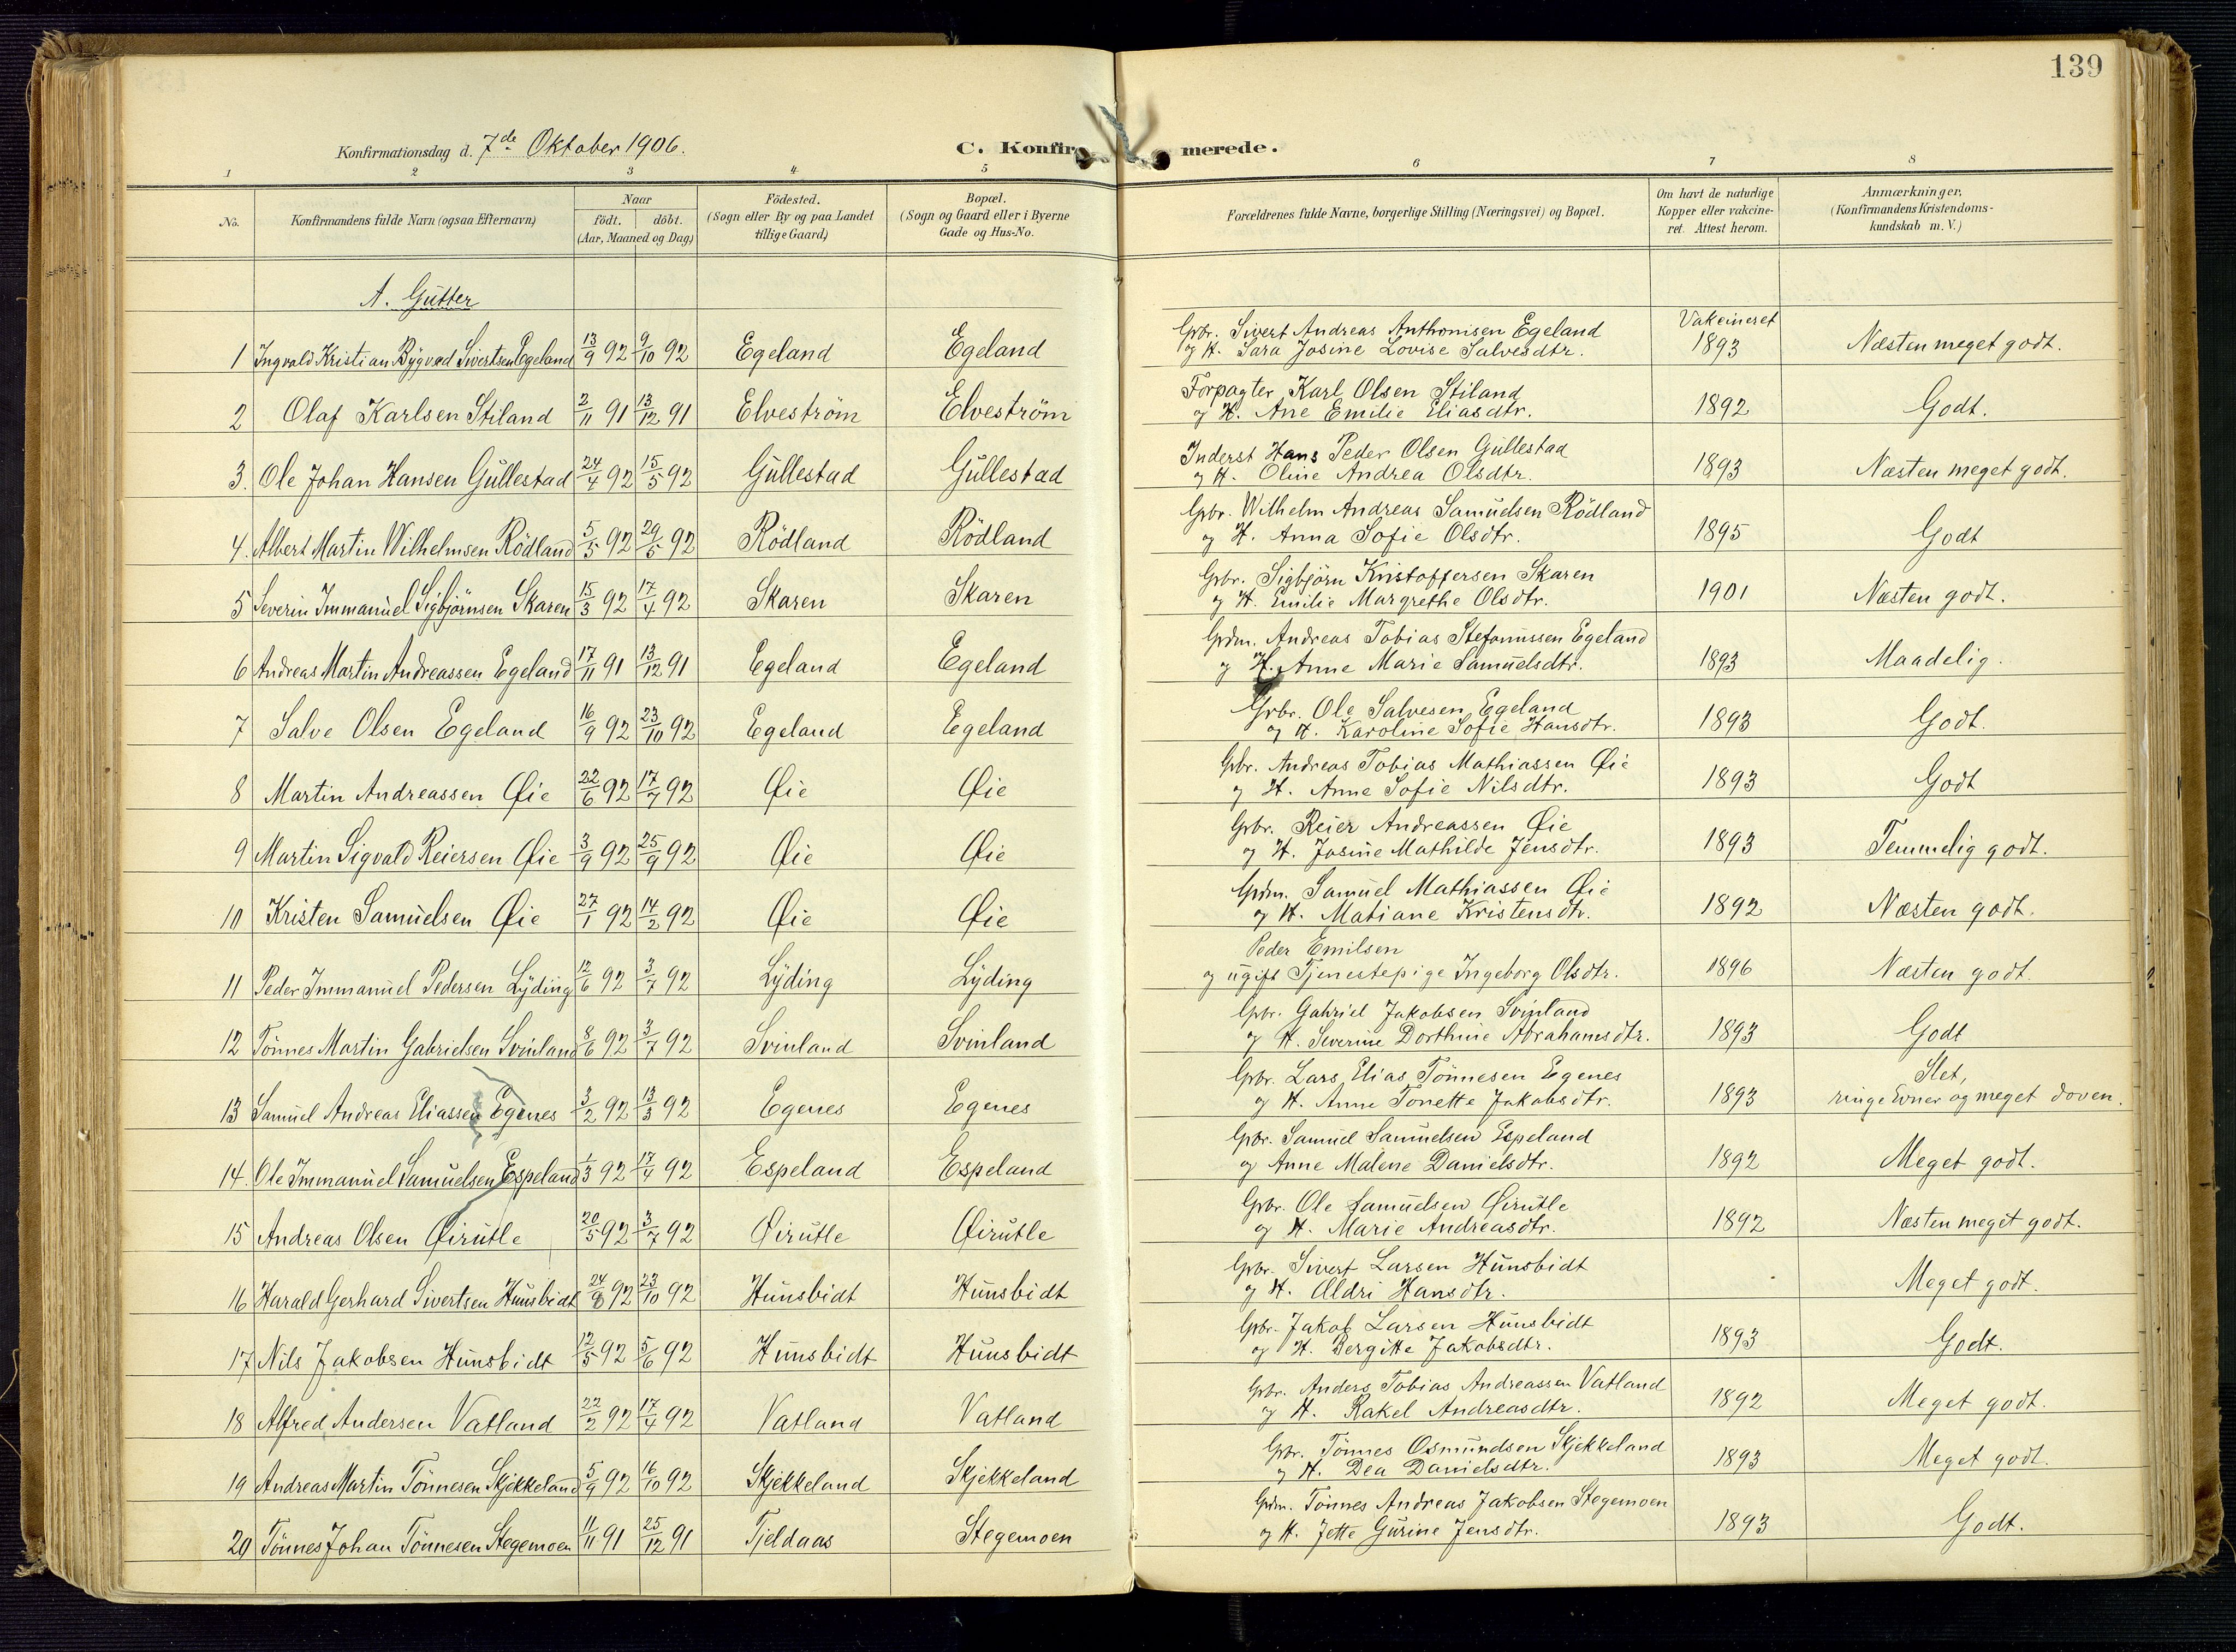 139
Konfirmationsdag d. 7de Oktober 1906.
C. Konfir merede.
1 2 3 4 5 6 7 8
No.
Konfirmandens fulde Navn (ogsaa Efternavn)
Naar
födt. döbt.
(Aar, Maaned og Dag)
Födested.
(Sogn eller By og paa Landet
tillige Gaard)
Bopæl.
(Sogn og Gaard eller i Byerne
Gade og Hus-No.
Forældrenes fulde Navne, borgerlige Stilling (Næringsvei) og Bopæl.
Om havt de naturlige
Kopper eller vakcine-
ret. Attest herom.
Anmærkninger,
(Konfirmandens Kristendoms-
kundskab m. V.)
A. Gutter
Gbr. Sivert Andreas Anthonisen Egeland Vakcineret
1 Ingvald Kristian Sivertsen Egeland 13/9 92 9/10 92 Egeland Egeland og H. Sara Josine Lovise Salvesdtr. 1893 Næsten meget godt.
Forpagter Karl Olsen Stiland
2 Olaf Karlsen Stiland 2/11 91 13/12 91 Elveström Elveström og H. Ane Emilie Eliasdtr. 1892 Godt.
Inderst Hans Peder Olsen Gullestad
3. Ole Johan Hansen Gullestad 24/4 92 15/5 92 Gullestad Gullestad og H. Oline Andrea Olsdtr. 1893 Næsten meget godt.
Gbr. Wilhelm Andreas Samuelsen Rödland
4. Albert Martin Wilhelmsen Rödland 5/5 92 29/5 92 Rödland Rödland og H. Anna Sofie Olsdtr. 1895 Godt
Gbr. Sigbjörn Kristoffersen Skaren
5 Severin Immanuel Sigbjörnsen Skaren 15/3 92 17/4 92 Skaren Skaren og H. Emilie Margrethe Olsdtr. 1901 Næsten godt.
Gdm. Andreas Tobias Stefanussen Egeland
6 Andreas Martin Andreassen Egeland 17/11 91 13/12 91 Egeland Egeland og H. Anne Marie Samuelsdtr. 1893 Maadelig.
Grbr. Ole Salvesen Egeland
7 Salve Olsen Egeland 16/9 92 23/10 92 Egeland Egeland og H. Karoline Sofie Hansdtr. 1893 Godt.
Gbr. Andreas Tobias Mathiassen Øie
8 Martin Andreassen Øie 22/6 92 17/7 92 Øie Øie og H. Anne Sofie Nilsdtr. 1893 Godt
Grbr. Reier Andreassen Øie
9 Martin Sigvald Reiersen Øie 3/9 92 25/9 92 Øie Øie og H. Josine Mathilde Jensdtr. 1893 Temmelig godt.
Grdm. Samuel Mathiassen Øie
10 Kristen Samuelsen Øie 27/1 92 14/2 92 Øie Øie og H. Matiane Kristensdtr. 1892 Næsten godt.
Peder Emilsen
11 Peder Immanuel Pedersen Lyding 12/6 92 3/7 92 Lyding Lyding og ugift Tjenestepige Ingeborg Olsdtr. 1896 Næsten godt.
Gbr. Gabriel Jakobsen Svinland
12 Tönnes Martin Gabrielsen Svinland 8/6 92 3/7 92 Svinland Svinland og H. Severine Dorthine Abrahamsdtr. 1893 Godt
Gbr. Lars Elias Tönnesen Egenes Slet,
13 Samuel Andreas Eliassen Egenes 3/2 92 13/3 92 Egenes Egenes og H. Anne Tonette Jakobsdtr. 1893 ringe Evner og meget doven.
Gbr. Samuel Samuelsen Espeland
14. Ole Immanuel Samuelsen Espeland 1/3 92 17/4 92 Espeland Espeland og Anne Malene Danielsdtr. 1892 Meget godt.
Grbr. Ole Samuelsen Øirutle
15 Andreas Olsen Øirutle 20/5 92 3/7 92 Øirutle Øirutle og H. Marie Andreasdtr. 1892 Næsten meget godt.
Gbr. Sivert Larsen Hunsbidt
16 Harald Gerhard Sivertsen Hunsbidt 24/8 92 23/10 92 Hunsbidt Hunsbidt og H. Aldri Hansdtr. Meget godt.
Gbr. Jakob Larsen Hunsbidt
17 Nils Jakobsen Hunsbidt 12/5 92 5/6 92 Hunsbidt Hunsbidt og H. Bergitte Jakobsdtr. 1893 Godt.
Gbr. Anders Tobias Andreassen Vatland
18 Alfred Andersen Vatland 22/2 92 17/4 92 Vatland Vatland og H. Rakel Andreasdtr. 1892 Meget godt.
Gbr. Tönnes Osmundsen Skjekkeland
19 Andreas Martin Tönnesen Skjekkeland 5/9 92 16/10 92 Skjekkeland Skjekkeland og H. Dea Danielsdtr. 1893 Meget godt.
Grdm. Tönnes Andreas Jakobsen Stegemoen
20 Tönnes Johan Tönnesen Stegemoen 11/11 91 25/12 91 Tjeldaas Stegemoen og H. Jette Gurine Jensdtr. 1893 Godt.